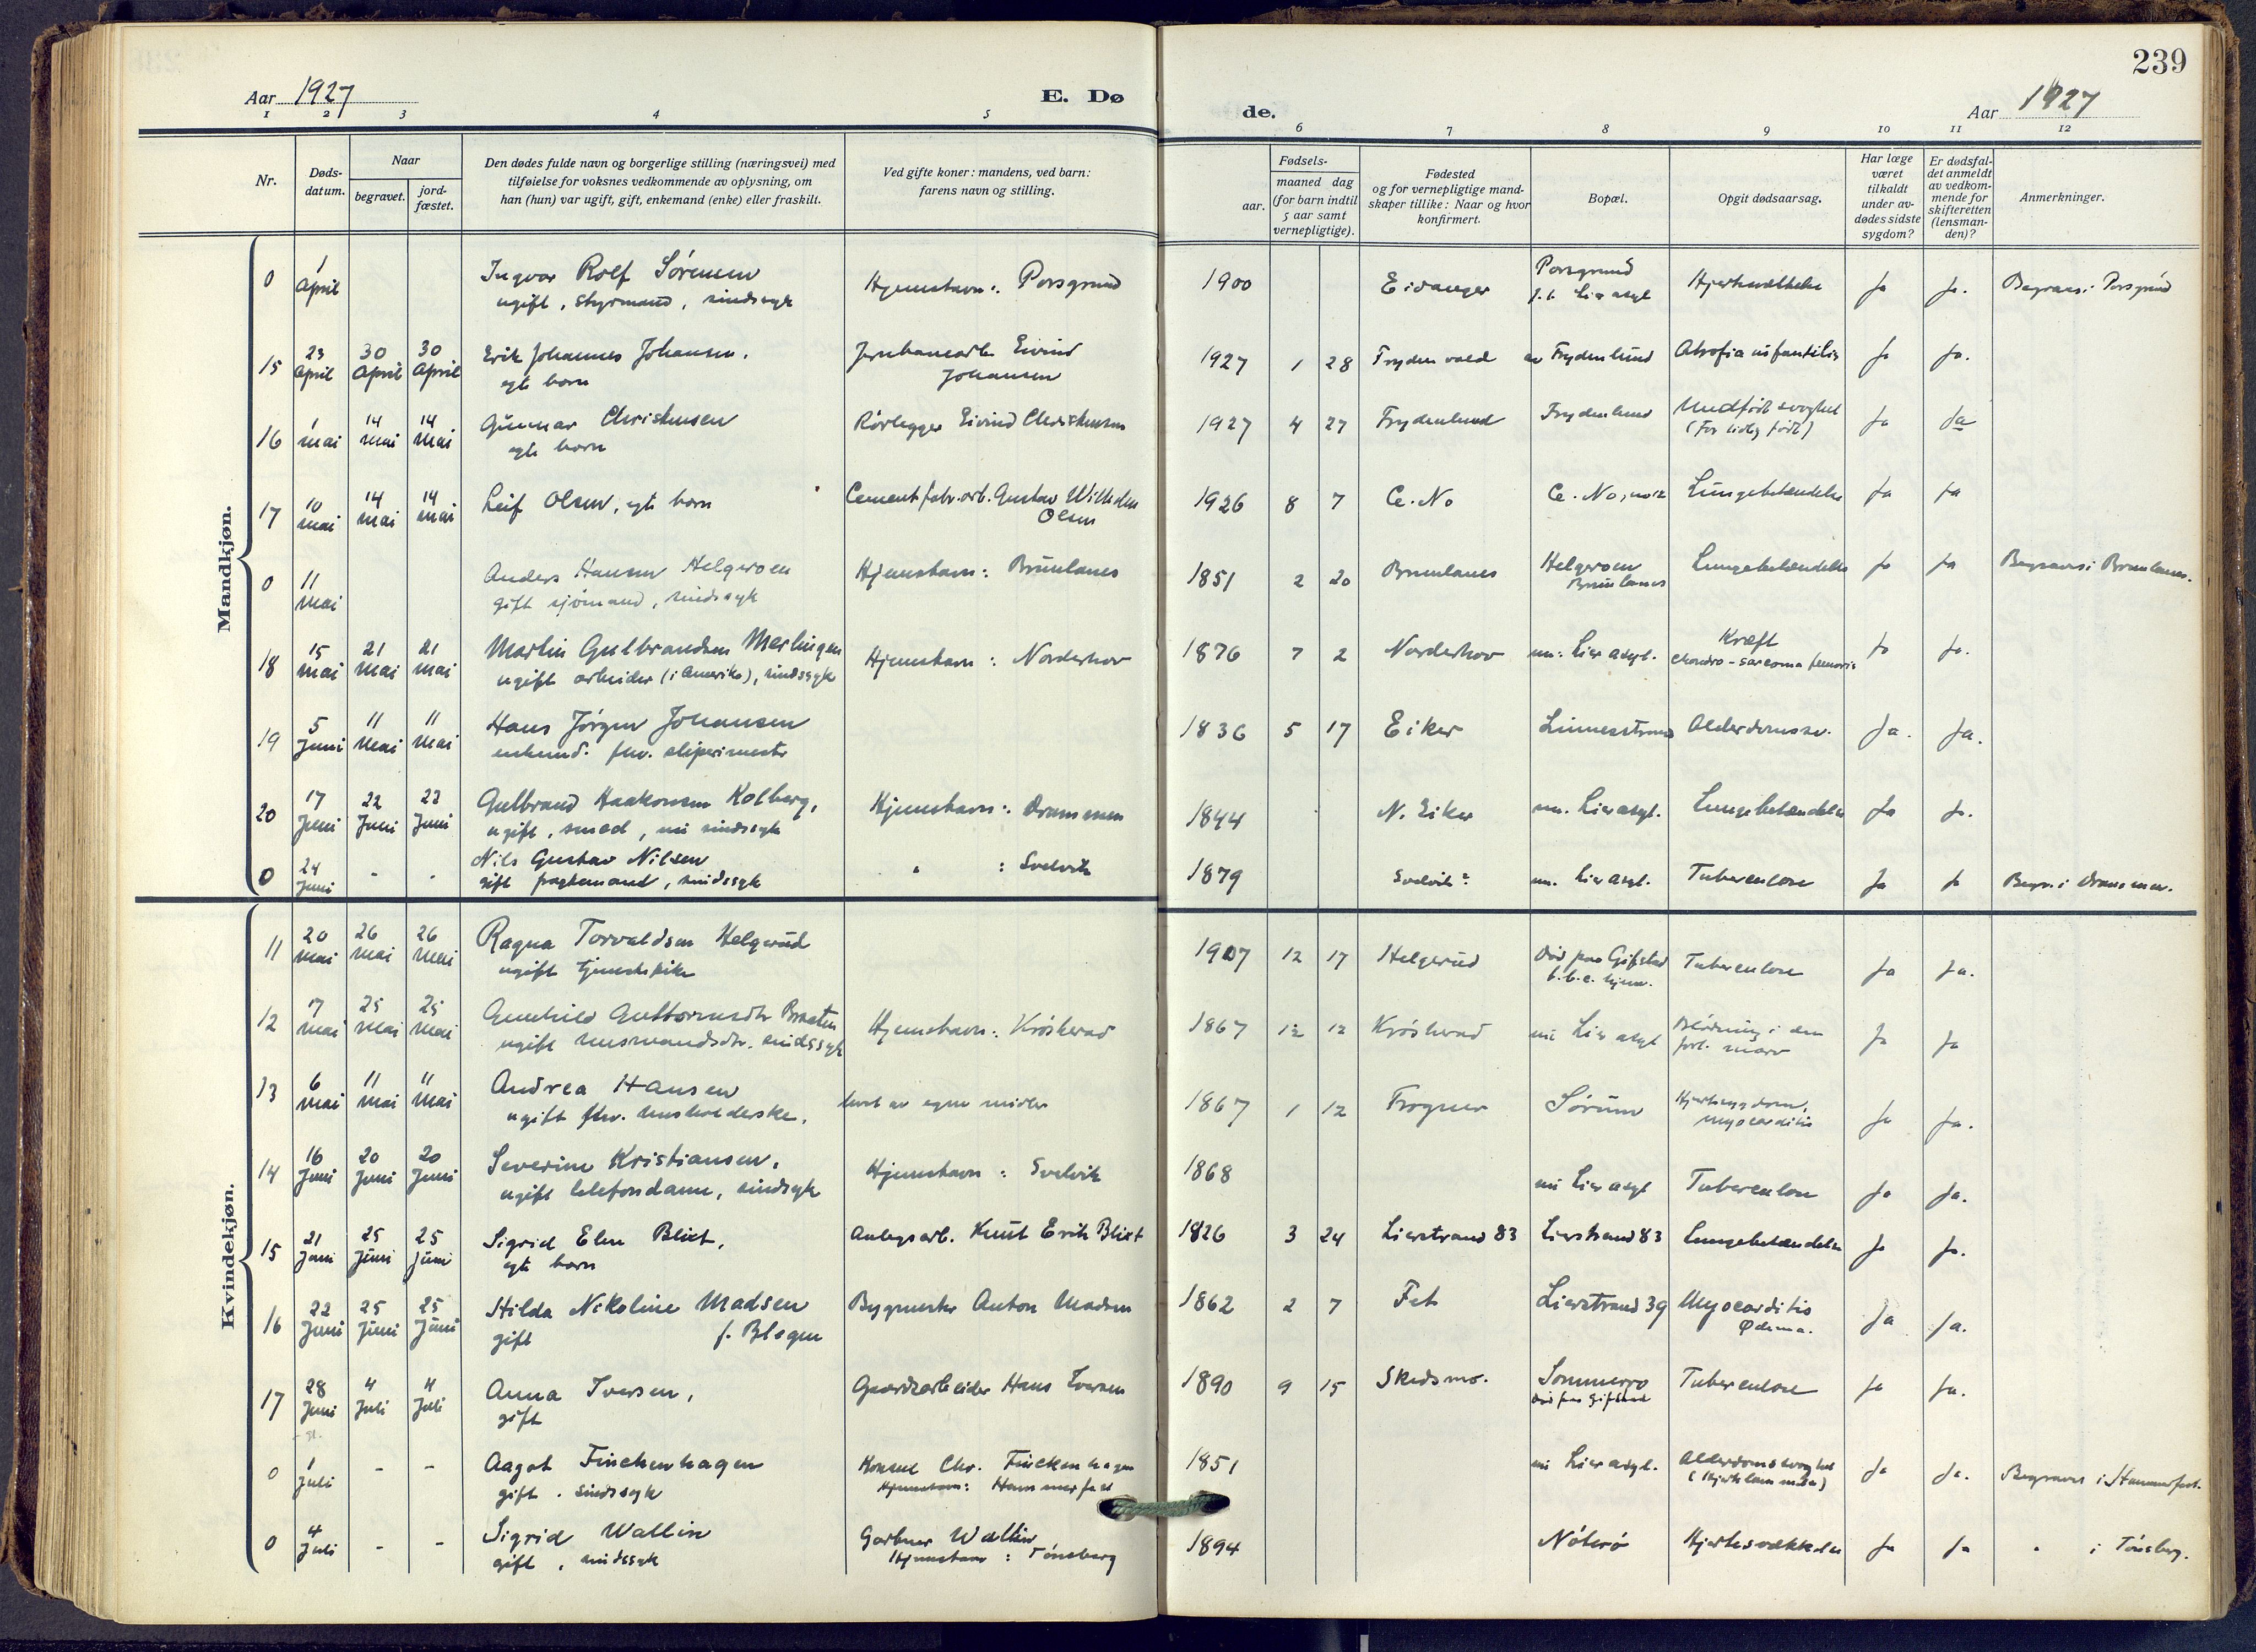 239
Aar 1927
E. Dø
de.
Aar 1927
1 2 3 4 5 6 7 8 9 10 11 12
Nr.
Døds-
datum.
Naar
begravet.
jord-
fæstet.
Den dødes fulde navn og borgerlige stilling (næringsvei) med
tilføielse for voksnes vedkommende av oplysning, om
han (hun) var ugift, gift, enkemand (enke) eller fraskilt.
Ved gifte koner: mandens, ved barn:
farens navn og stilling.
Fødsels-
aar.
maaned dag
(for barn indtil
5 aar samt
vernepligtige).
Fødested
og for vernepligtige mand-
skaper tillike: Naar og hvor
konfirmert.
Bopæl.
Opgit dødsaarsag.
Har læge
været
tilkaldt
under av-
dødes sidste
sygdom?
Er dødsfal-
det anmeldt
av vedkom-
mende for
skifteretten
(lensman-
den)?
Anmerkninger.
Mandkjøn.
0 1 April Ingvar Rolf Sørensen Hjemstavn: Porsgrund 1900 Eidanger Porsgrund Hjertelammelse ja ja. Begraves i Porsgrund
ugift, styrmand, sindssyk Lier asyl
15 23 April 30 April 30 April Erik Johannes Johansen, Jernbanearb. Eivind 1927 1 28 Frydenlund Atrofia infantilis ja ja.
egte barn Johansen
16 1 mai 14 mai 14 mai Gunnar Christensen Rørlegger Eivind Christensen 1927 4 27 Frydenlund Frydenlund Medfødt svaghet ja ja
egte barn (For tidlig født)
17 10 mai 14 mai 14 mai Leif Olsen, egte barn Cementfabr.arb. Gustav Wilhelm 1926 8 7 Ce. No Ce. No, Lungebetændelse ja ja
Olsen
0 11 mai Anders Hansen Helgeroen Hjemstavn: Brunlanes 1851 2 20 Brunlanes Helgeroen Lungebetændelse ja ja Begraves i Brunlanes.
gift sjømand, sindssyk Brunlanes
18 15 mai 21 mai 21 mai Martin Gulbrandsen Hjemstavn: Norderhov 1876 7 2 Norderhov Lier asyl. Kræft ja ja.
ugift arbeider (i Amerika), sindssyk chondro-sarcoma femoris
19 5 Juni 11 mai 11 mai Hans Jørgen Johansen 1836 5 17 Eiker Linnesstrand Alderdomssv. ja. ja.
enkemd. fhv. sliperimester
20 17 Juni 22 Juni 22 Juni Gulbrand Haakonsen Kolberg, Hjemstavn: Drammen 1844 N. Eiker Lier asyl. Lungebetændelse ja ja.
ugift, smed, nu sindssyk
0 24 Juni - - Nils Gustav Nilsen " : Svelvik 1879 Svelvik? Lier asyl. Tuberculose ja ja Begr. i Drammen.
gift fragtemand, sindssyk
Kvindekjøn.
11 20 mai 26 mai 26 mai Ragna Torvaldsen Helgerud 1907 12 17 Helgerud død paa Gifstad Tuberculose ja ja.
ugift tjenestepike t.b.c. hjem.
12 17 mai 25 mai 25 mai Gunhild Guttormsdtr Braaten Hjemstavn: Krødsherad 1867 12 12 Krødsherad nu Lier asyl Blødning i den ja ja
ugift husmandsdtr. sindssyk forl. marv
13 6 mai 11 mai 11 mai Andrea Hansen levet av egne midler 1867 1 12 Frogner Sørum Hjertesygdom, ja ja.
ugift fhv. husholderske. myocarditis
14 16 Juni 20 Juni 20 Juni Severine Kristiansen, Hjemstavn: Svelvik 1868 nu Lier asyl Tuberculose ja ja.
ugift telefondame, sindssyk
15 21 Juni 25 Juni 25 Juni Sigrid Elen Blixt, Anlegsarb. Knut Erik Blixt 1826 3 24 Lierstrand 83 Lierstrand 83 Lungebetændelse ja ja.
egte barn
16 22 Juni 25 Juni 25 Juni Hilda Nikoline Madsen Bygmester Anton Madsen 1862 2 7 Fet Lierstrand 39 Myocarditis ja ja.
gift f. Blegen Ødema.
17 28 Juni 4 Juli 4 Juli Anna Iversen, Gaardsarbeider Hans Iversen 1890 9 15 Skedsmo. Sommerro Tuberculose ja ja.
gift død paa Gifstad
0 1 Juli - - Aagot Finckenhagen Konsul Chr. Finckenhagen 1851 nu Lier asyl. Alderdomssvaghet ja ja. Begraves i Hammerfest.
gift. sindssyk Hjemstavn: Hammerfest (Hjertelammelse)
0 4 Juli - - Sigrid Wallin Gartner Wallin 1894 Nøterø Hjertesvækkelse ja ja " i Tønsberg.
gift, sindssyk Hjemstavn: Tønsberg